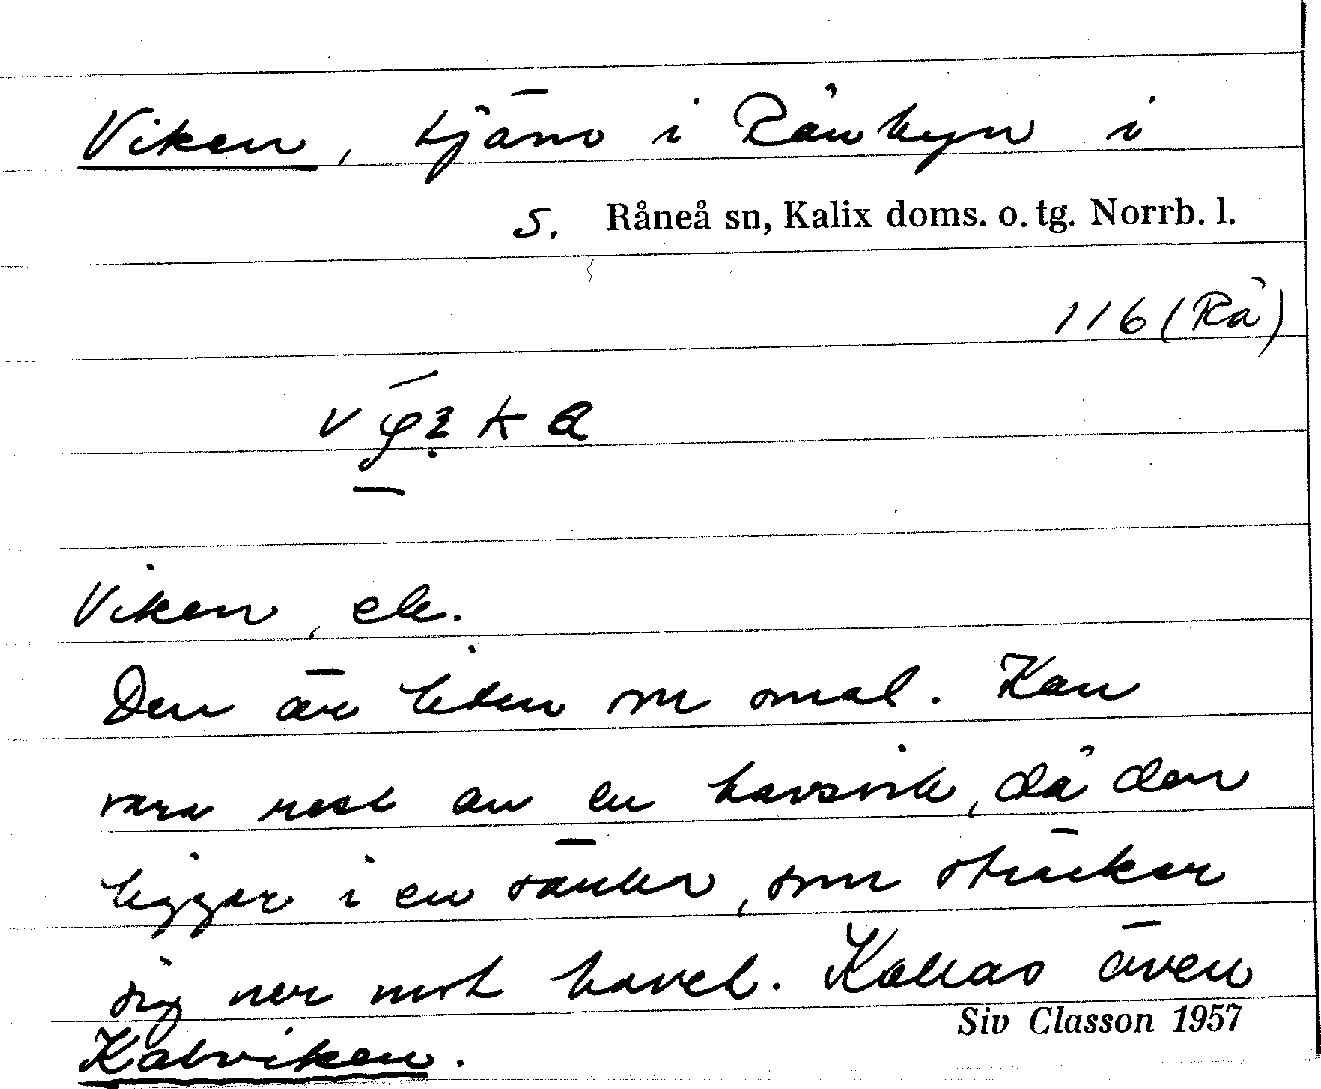 Viken, tjärn i Rånbyn i
S. Råneå sn, Kalix doms. o. tg. Norrb. l.
116 (Rå)
Viken, ele.
Den är liten o smal. Kan
vara rest av en havsvik, då den
ligger i en sänka, som sträcker
sig ner mot havet. Kallas även
Siv Classon 1957
Kalvviken.